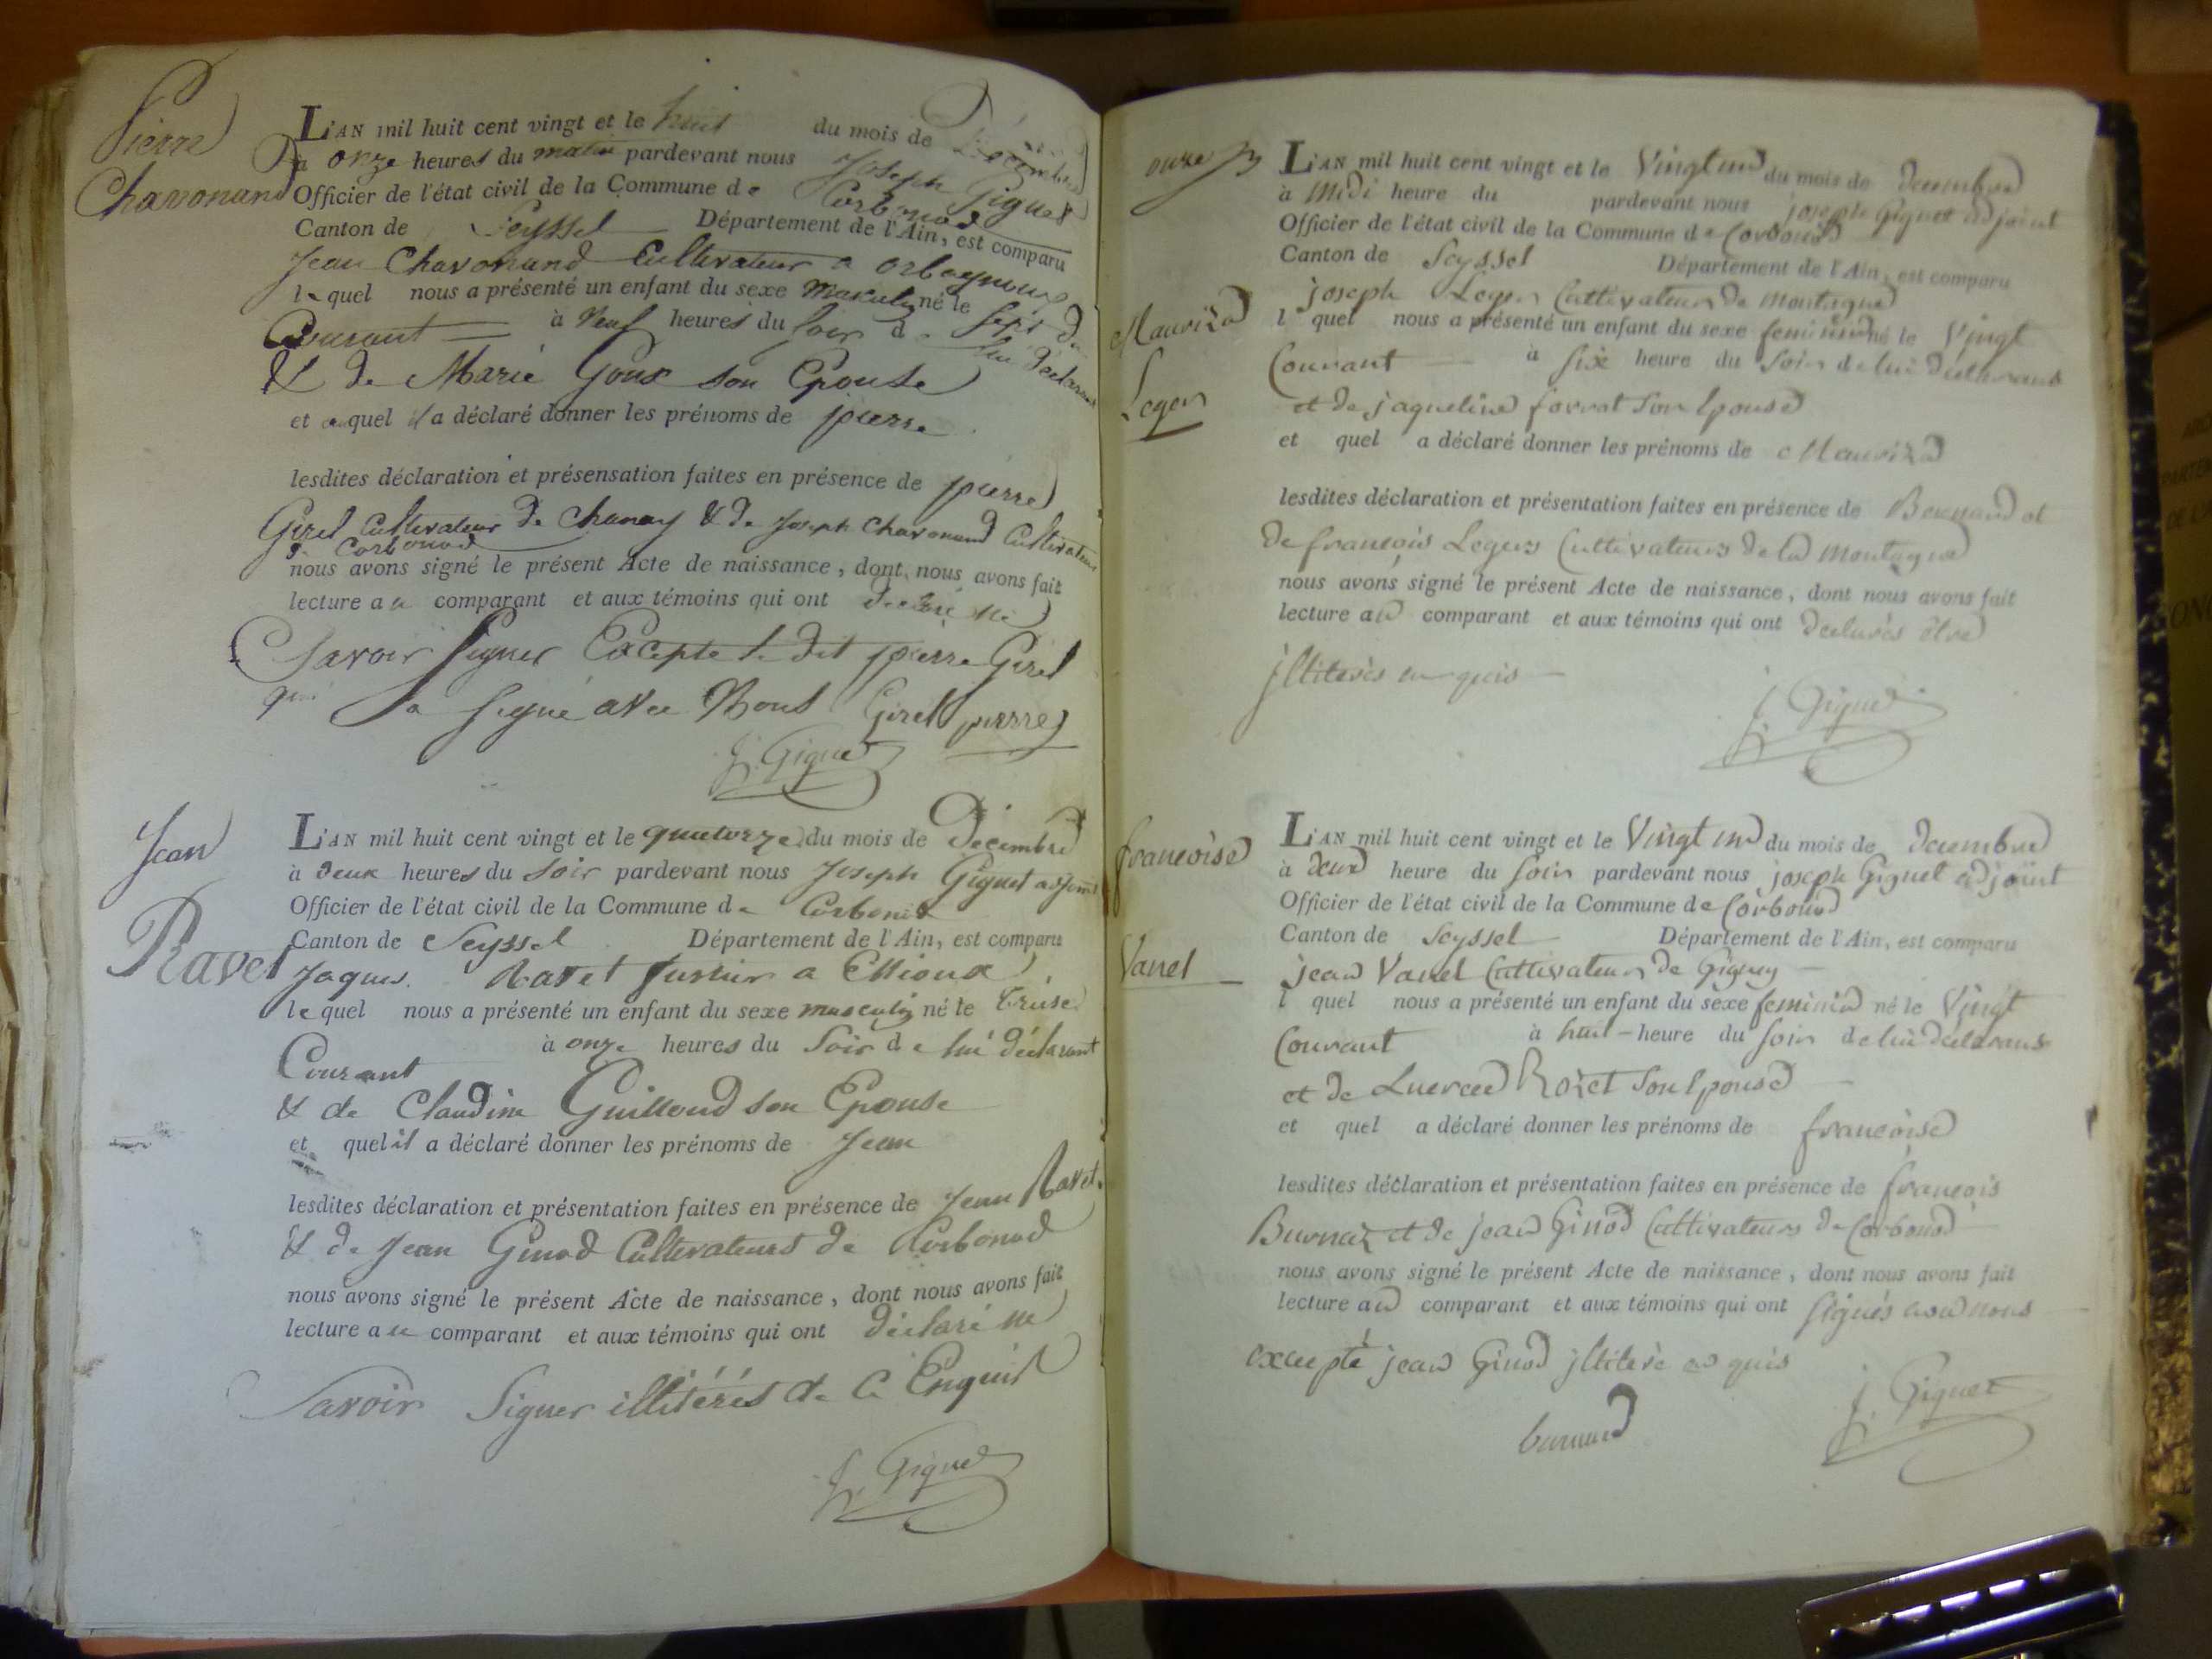 Pierre
Chavonand
L'AN mil huit cent vingt et le huit du mois de Décembre
à onze heures du matin pardevant nous Joseph Giguet
Officier de l'état civil de la Commune de Corbonod
Canton de Seyssel Département de l'Ain, est comparu
Jean Chavonand Cultivateur a
lequel nous a présenté un enfant du sexe Masculin né le sept du
Courant à Neuf heures du soir de lui déclarant
& de Marie Goux son Epouse
et auquel il a déclaré donner les prénoms de pierre
lesdites déclaration et présensation faites en présence de pierre
Girel Cultivateur de Chanay & de Joseph Chavonand Cultivateur
de Corbonod
nous avons signé le présent Acte de naissance, dont nous avons fait
lecture au comparant et aux témoins qui ont déclaré Ne
Savoir signer Excepte le dit pierre Girel
qui a signé avec Nous Girel pierre
J. Giguet
Jean
Ravet
L'AN mil huit cent vingt et le quatorze du mois de Décembre
à deux heures du soir pardevant nous Joseph Giguet adjoint
Officier de l'état civil de la Commune de Corbonod
Canton de Seyssel Département de l'Ain, est comparu
Jaques Ravet a
lequel nous a présenté un enfant du sexe masculin né le treise
Courant à onze heures du Soir de lui déclarant
& de Claudine Guilloud son Epouse
et quel il a déclaré donner les prénoms de Jean
lesdites déclaration et présentation faites en présence de Jean Ravet
& de Jean Ginod Cultivateurs de Corbonod
nous avons signé le présent Acte de naissance, dont nous avons fait
lecture au comparant et aux témoins qui ont déclaré ne
Savoir Signer illitérés de ce Enquis
J. Giguet
onze
Mauriza
Leger
L'AN mil huit cent vingt et le Vingt un du mois de decembre
à midi heure du pardevant nous joseph Giguet adjoint
Officier de l'état civil de la Commune de Corbonod
Canton de Seyssel Département de l'Ain, est comparu
joseph Leger Cultivateur de montagne
l quel nous a présenté un enfant du sexe feminin né le Vingt
Courant à six heure du soir de lui déclarant
et de jaqueline forrat son Epouse
et quel a déclaré donner les prénoms de Mauriza
lesdites déclaration et présentation faites en présence de Bernard et
de françois Legers Cultivateurs de la montagne
nous avons signé le présent Acte de naissance, dont nous avons fait
lecture au comparant et aux témoins qui ont declarés être
jlliterés enquis
J. Giguet
françoise
Vanel
L'AN mil huit cent vingt et le Vingt un du mois de decembre
à deux heure du soir pardevant nous joseph Giguet adjoint
Officier de l'état civil de la Commune de Corbonod
Canton de Seyssel Département de l'Ain, est comparu
jean Vanel Cultivateur de Gignez
l quel nous a présenté un enfant du sexe feminin né le Vingt
Courant à huit heure du soir de lui déclarant
et de Luerce Rozet son Epouse
et quel a déclaré donner les prénoms de françoise
lesdites déclaration et présentation faites en présence de françois
Burnaz et de jean Ginod Cultivateurs de Corbonod
nous avons signé le présent Acte de naissance, dont nous avons fait
lecture au comparant et aux témoins qui ont signés avec nous
excepté jean Ginod jlliteré enquis
J. Giguet